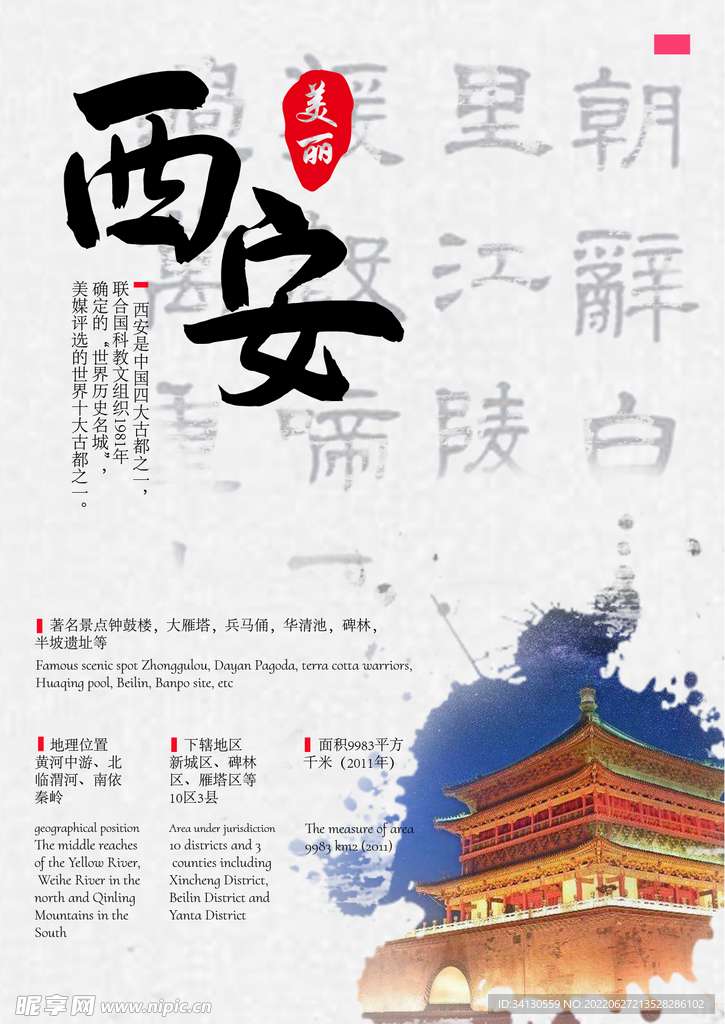 西安
美丽
西安是中国四大古都之一，
联合国科教文组织1981年
确定的“世界历史名城”，
美媒评选的世界十大古都之一。
朝辞白
里江陵
援啼
過萬
一
著名景点钟鼓楼，大雁塔，兵马俑，华清池，碑林，
半坡遗址等
Famous scenic spot Zhonggulou, Dayan Pagoda, terra cotta warriors,
Huaqing pool, Beilin, Banpo site, etc
地理位置
黄河中游、北
临渭河、南依
秦岭
geographical position
The middle reaches
of the Yellow River,
Weihe River in the
north and Qinling
Mountains in the
South
下辖地区
新城区、碑林
区、雁塔区等
10区3县
Area under jurisdiction
10 districts and 3
counties including
Xincheng District,
Beilin District and
Yanta District
面积9983平方
千米（2011年）
The measure of area
9983 km2 (2011)
昵享网 www.nipic.cn
ID:34130559 NO:20220627213528286102